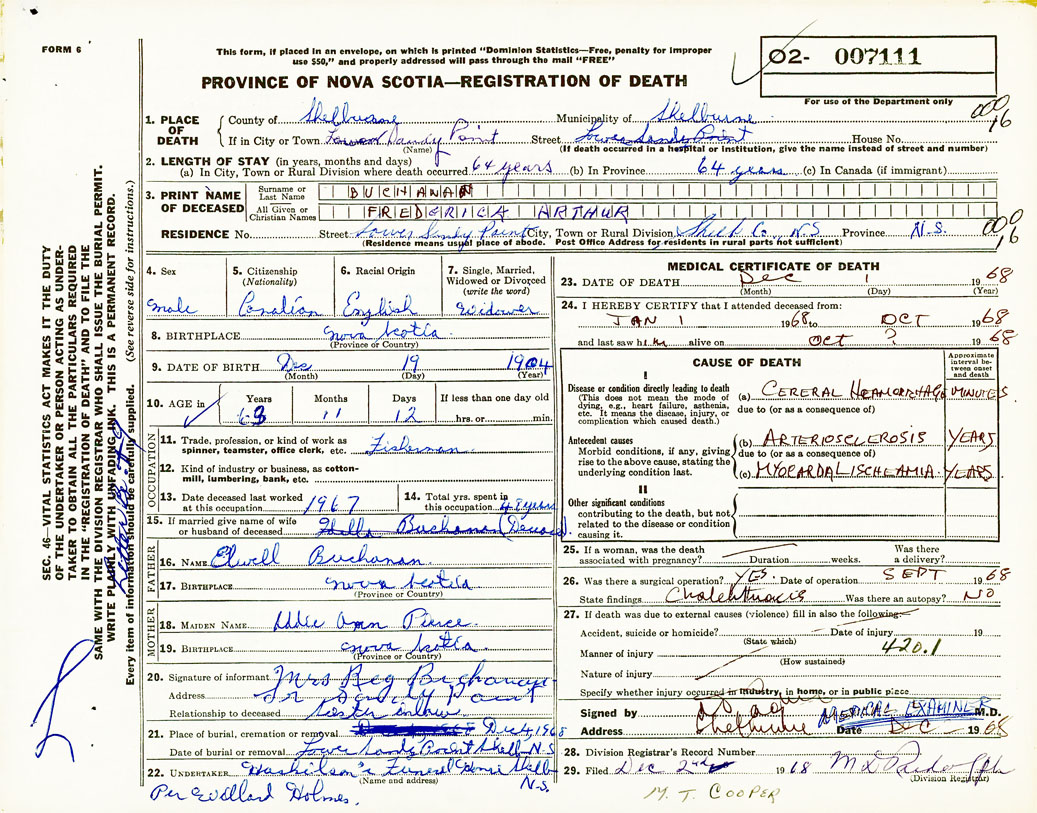 FORM 6
This form, if placed in an envelope, on which is printed "Dominion Statistics—Free, penalty for improper
use $50," and properly addressed will pass through the mail "FREE"
PROVINCE OF NOVA SCOTIA—REGISTRATION OF DEATH
02- 007111
For use of the Department only
1. PLACE OF DEATH
County of Shelburne Municipality of Shelburne
000 16
If in City or Town Lower Sandy Point Street Lower Sandy Point House No.
(Name) (If death occurred in a hospital or institution, give the name instead of street and number)
2. LENGTH OF STAY (in years, months and days)
(a) In City, Town or Rural Division where death occurred 64 years (b) In Province 64 years (c) In Canada (if immigrant)
3. PRINT NAME OF DECEASED
Surname or Last Name BUCHANAN
All Given or Christian Names FREDERICA ARTHUR
RESIDENCE No. Street Lower Sandy Point City, Town or Rural Division Shel. Co. N.S Province N.S.
000 16
(Residence means usual place of abode. Post Office Address for residents in rural parts not sufficient)
4. Sex
male
5. Citizenship
(Nationality)
Canadian
6. Racial Origin
English
7. Single, Married,
Widowed or Divorced
(write the word)
Widower
8. BIRTHPLACE Nova Scotia
(Province or Country)
9. DATE OF BIRTH Dec 19 1904
(Month) (Day) (Year)
10. AGE in
Years Months Days If less than one day old
63 11 12 hrs. or min.
OCCUPATION
11. Trade, profession, or kind of work as
spinner, teamster, office clerk, etc. Fisherman
12. Kind of industry or business, as cotton-
mill, lumbering, bank, etc.
13. Date deceased last worked
at this occupation 1967
14. Total yrs. spent in
this occupation 48 years
15. If married give name of wife
or husband of deceased Buchanan
FATHER
16. NAME Elwell Buchanan
17. BIRTHPLACE Nova Scotia
(Province or Country)
MOTHER
18. MAIDEN NAME Addie Ann Pierce
19. BIRTHPLACE Nova Scotia
(Province or Country)
20. Signature of informant Mrs Reg Buchanan
Address Lr Sandy Point
Relationship to deceased sister inlaw
21. Place of burial, cremation or removal Dec 4, 1968
Date of burial or removal Lower Sandy Point Shel. N.S
22. UNDERTAKER Funeral Home Shelb N.S.
(Name and address)
Per Willard Holmes.
MEDICAL CERTIFICATE OF DEATH
23. DATE OF DEATH Dec 1 1968
(Month) (Day) (Year)
24. I HEREBY CERTIFY that I attended deceased from:
JAN 1 1968 to OCT 1968
and last saw him alive on OCT ? 1968
CAUSE OF DEATH
Approximate
interval be-
tween onset
and death
I
Disease or condition directly leading to death
(This does not mean the mode of
dying, e.g., heart failure, asthenia,
etc. It means the disease, injury, or
complication which caused death.)
(a) CERERAL HEAMORRHAGE MINUTES
due to (or as a consequence of)
Antecedent causes
Morbid conditions, if any, giving
rise to the above cause, stating the
underlying condition last.
(b) ARTERIOSCLEROSIS YEARS
due to (or as a consequence of)
(c) MYOCARDAL ISCHEAMIA YEARS
II
Other significant conditions
contributing to the death, but not
related to the disease or condition
causing it.
25. If a woman, was the death
associated with pregnancy? Duration weeks. Was there
a delivery?
26. Was there a surgical operation? YES. Date of operation SEPT 1968
State findings Was there an autopsy? NO
27. If death was due to external causes (violence) fill in also the following:
Accident, suicide or homicide? Date of injury 19
(State which)
Manner of injury 420.1
(How sustained)
Nature of injury
Specify whether injury occurred in industry, in home, or in public place
Signed by MEDICAL EXAMINER M.D.
Address Shelburne Date DEC 1968
28. Division Registrar's Record Number
29. Filed Dec 2nd 1968
(Division Registrar)
M. T. COOPER
SEC. 46—VITAL STATISTICS ACT MAKES IT THE DUTY
OF THE UNDERTAKER OR PERSON ACTING AS UNDER-
TAKER TO OBTAIN ALL THE PARTICULARS REQUIRED
IN THE "REGISTRATION OF DEATH" AND TO FILE THE
SAME WITH THE DIVISION REGISTRAR WHO SHALL ISSUE THE BURIAL PERMIT.
WRITE PLAINLY WITH UNFADING INK. THIS IS A PERMANENT RECORD.
Every item of information should be carefully supplied. (See reverse side for instructions.)